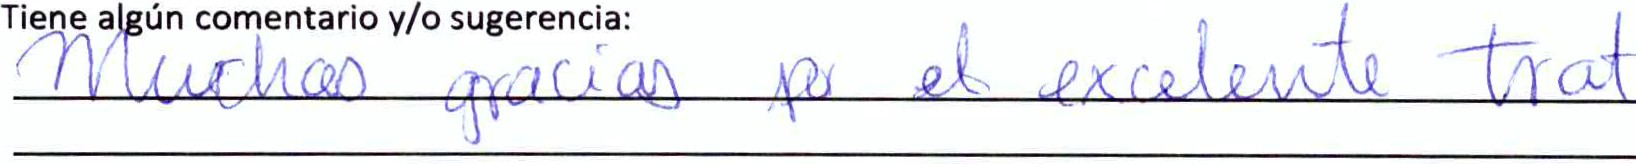 Tiene algún comentario y/o sugerencia:
Muchas gracias por el excelente trat